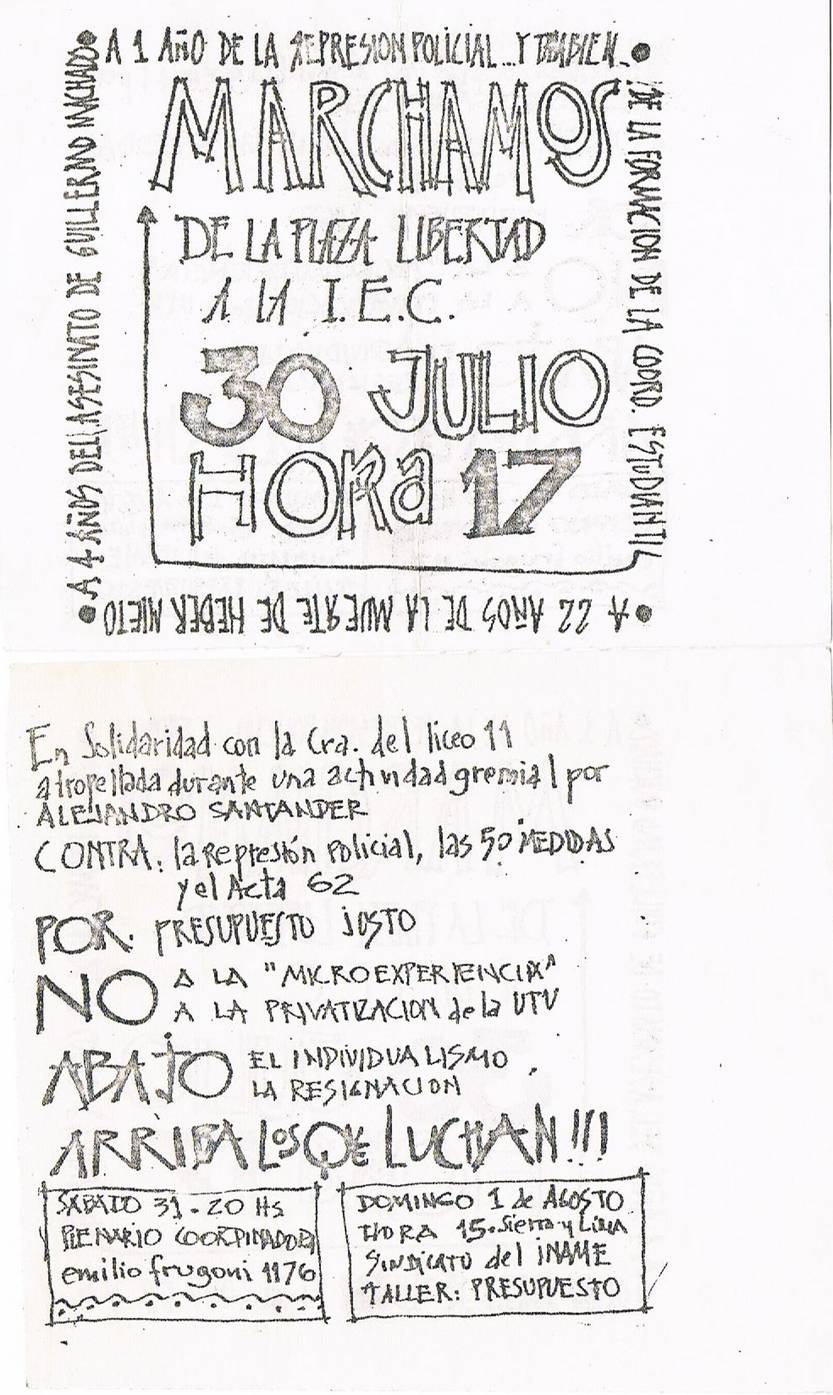 A 1 AÑO DE LA REPRESION POLICIAL... Y TAMBIEN...
DE LA FORMACION DE LA COORD. ESTUDIANTIL
A 22 AÑOS DE LA MUERTE DE HEBER NIETO
A 4 AÑOS DEL ASESINATO DE GUILLERMO MACHADO
MARCHAMOS
DE LA PLAZA LIBERTAD
A LA I.E.C.
30 JULIO
HORA 17
En Solidaridad con la Cra. del liceo 11
atropellada durante una actividad gremial por
ALEJANDRO SANTANDER
CONTRA: la Represión Policial, las 50 MEDIDAS
y el Acta 62
POR. PRESUPUESTO JUSTO
NO A LA "MICROEXPERIENCIA"
A LA PRIVATIZACION de la UTU
ABAJO EL INDIVIDUALISMO
LA RESIGNACION
ARRIBA LOS QUE LUCHAN!!!
SABADO 31 - 20 Hs
PLENARIO COORDINADORA
emilio frugoni 1176
DOMINGO 1 de AGOSTO
HORA 15. Sierra y Lima
SINDICATO del INAME
TALLER: PRESUPUESTO